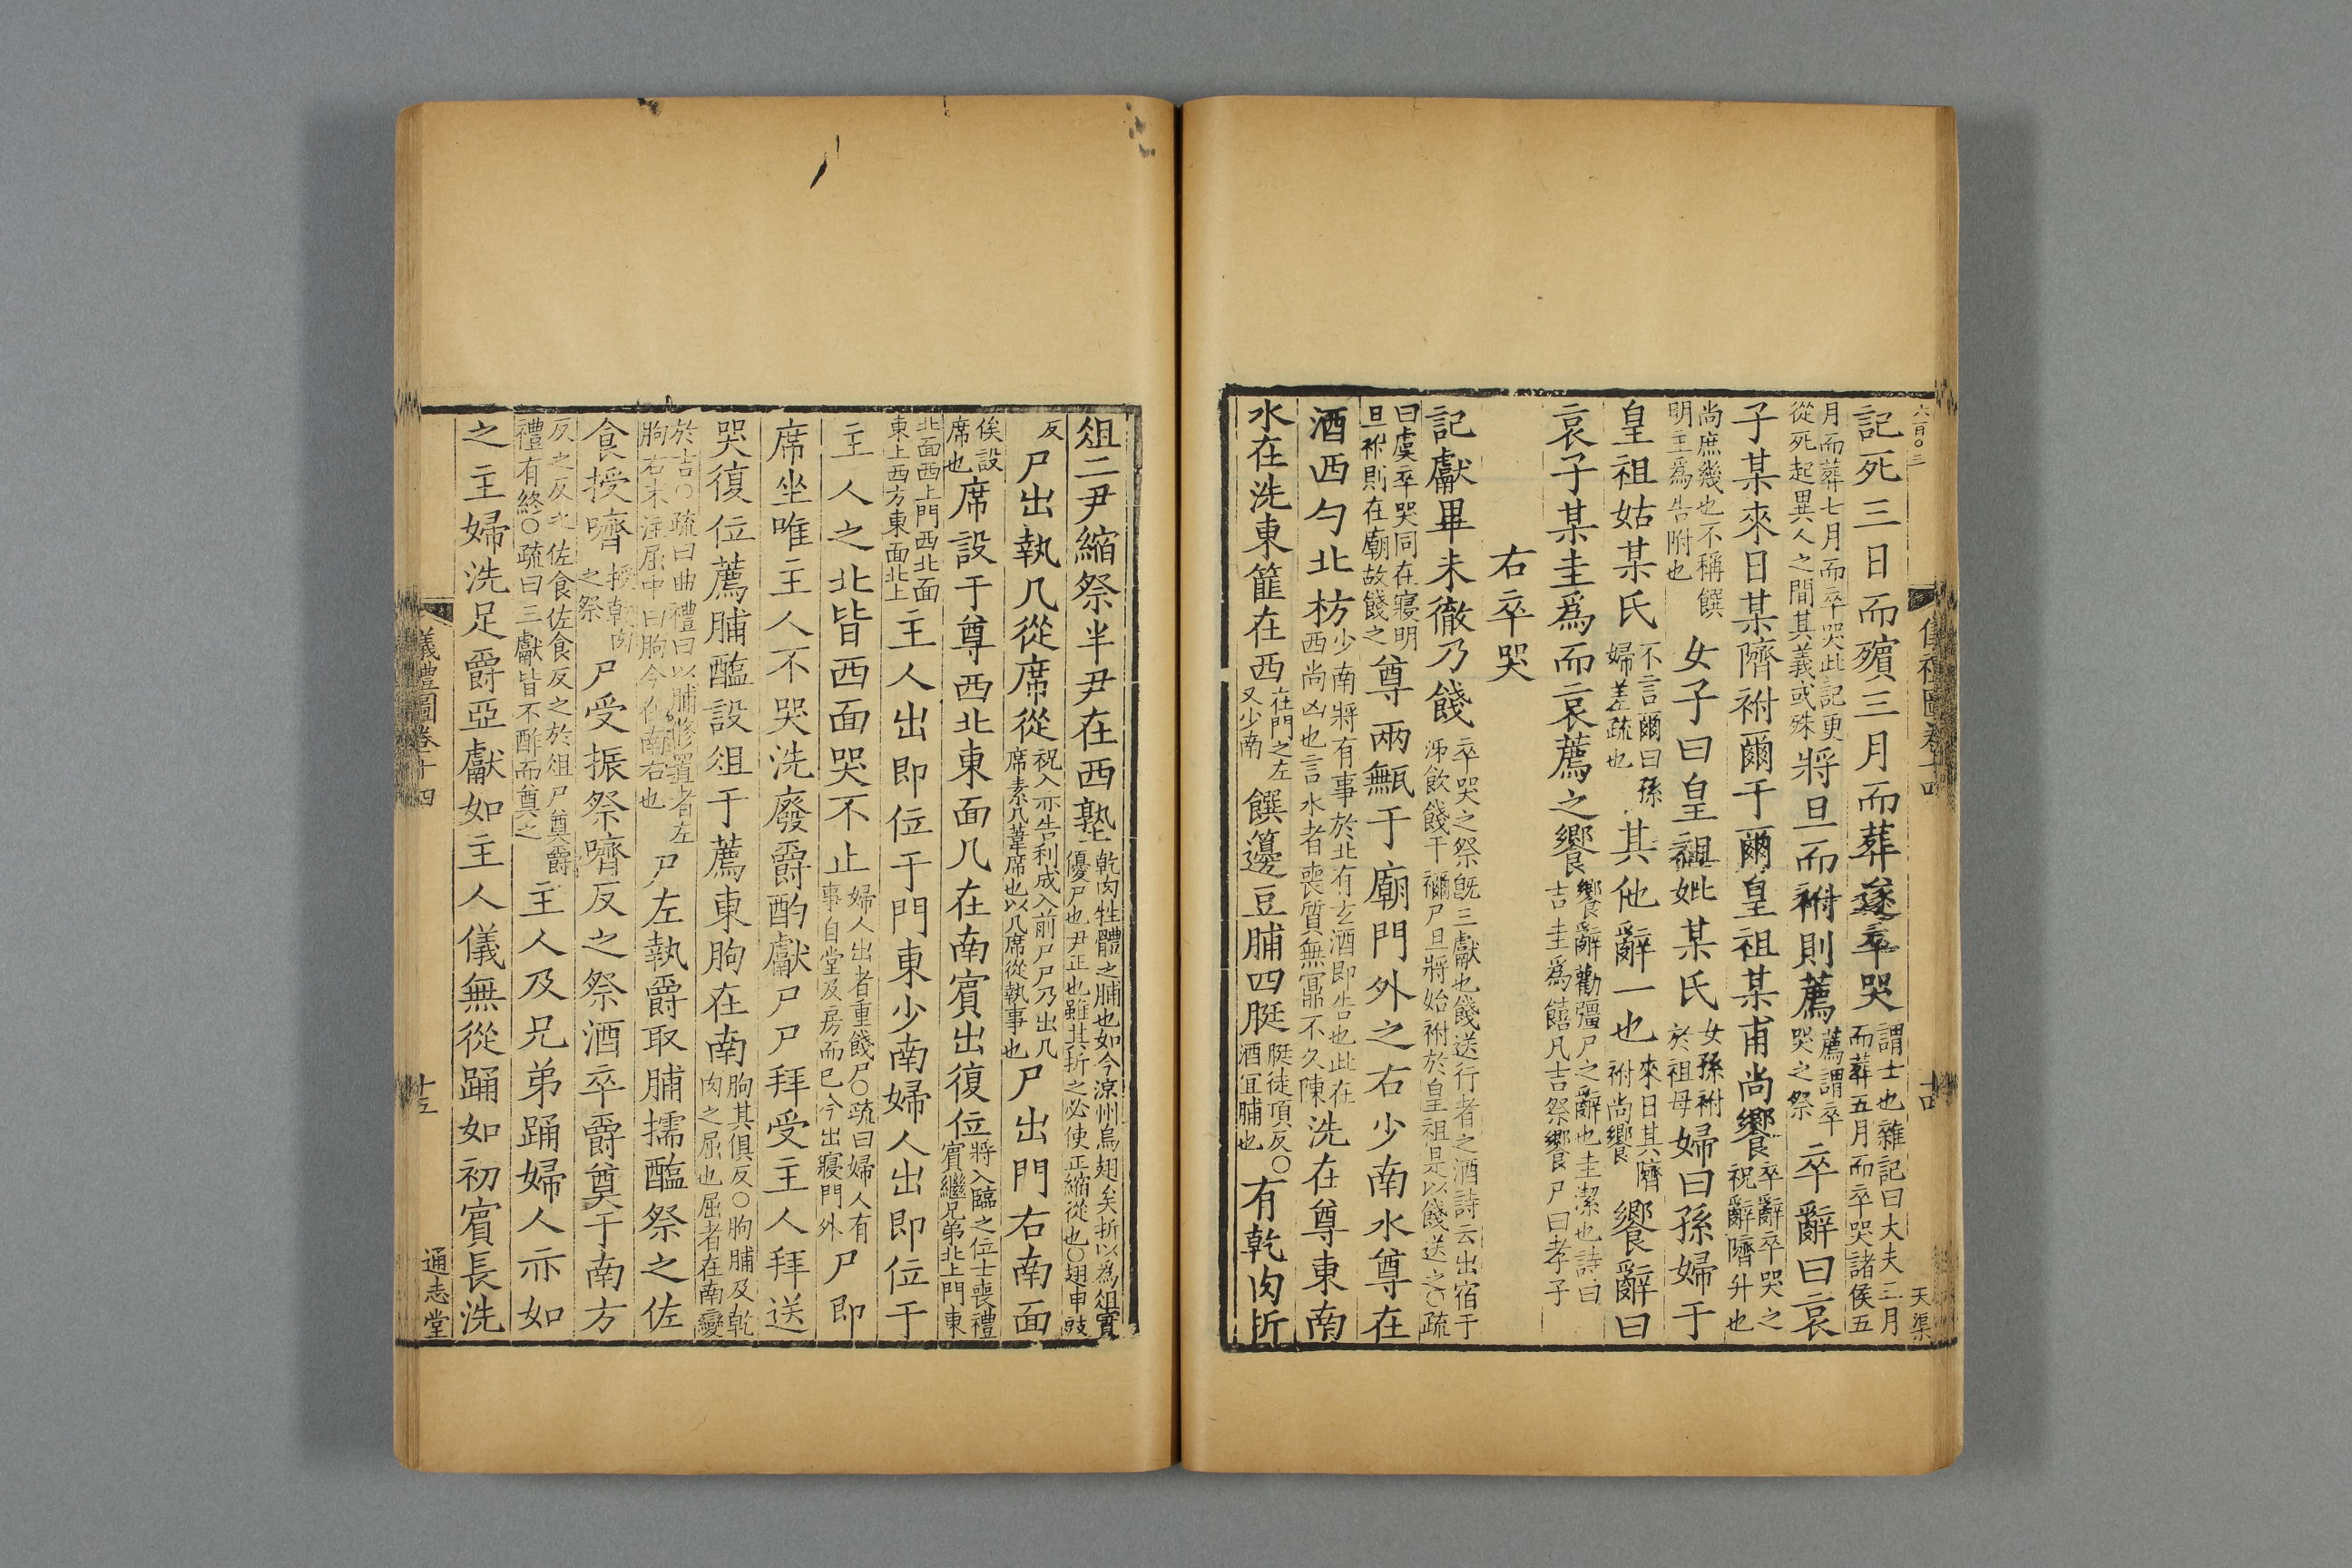 六百〇三
儀禮圖卷十四
十四
天渠
記死三日而殯三月而葬遂卒哭謂士也雜記曰大夫三月而葬五月而卒哭諸侯五
月而葬七月而卒哭此記更從死起異人之間其義或殊將旦而祔則薦薦謂卒哭之祭卒辭曰哀
子某來日某隮祔爾于爾皇祖某甫尚饗卒辭卒哭之祝辭隮升也
尚庶幾也不稱饌明主爲告附也女子曰皇祖妣某氏女孫祔於祖母婦曰孫婦于
皇祖姑某氏不言爾曰孫婦差疏也其他辭一也來日其隮祔尚饗饗辭曰
哀子某圭爲而哀薦之饗饗辭勸彊尸之辭也圭潔也詩曰吉圭爲饎凡吉祭饗尸曰孝子
右卒哭
記獻畢未徹乃餞卒哭之祭旣三獻也餞送行者之酒詩云出宿于泲飲餞于禰尸旦將始祔於皇祖是以餞送之〇疏
曰虞卒哭同在寢明旦祔則在廟故餞之尊兩甒于廟門外之右少南水尊在
酒西勺北枋少南將有事於北有玄酒即吉也此在西尚凶也言水者喪質無冪不久陳洗在尊東南
水在洗東篚在西在門之左又少南饌籩豆脯四脡脡徒頂反〇酒宜脯也有乾肉折
俎二尹縮祭半尹在西塾乾肉牲體之脯也如今涼州烏翅矣折以爲俎實優尸也尹正也雖其折之必使正縮從也〇翅申豉
反尸出執几從席從祝入亦告利成入前尸尸乃出几席素几葦席也以几席從執事也尸出門右南面
俟設席也席設于尊西北東面几在南賓出復位將入臨之位士喪禮賓繼兄弟北上門東
北面西上門西北面東上西方東面北上主人出即位于門東少南婦人出即位于
主人之北皆西面哭不止婦人出者重餞尸〇疏曰婦人有事自堂及房而已今出寢門外尸即
席坐唯主人不哭洗廢爵酌獻尸尸拜受主人拜送
哭復位薦脯醢設俎于薦東朐在南朐其俱反〇朐脯及乾肉之屈也屈者在南變
於吉〇疏曰曲禮曰以脯脩置者左朐右末注屈中曰朐今在南右也尸左執爵取脯擩醢祭之佐
食授嚌授乾肉之祭尸受振祭嚌反之祭酒卒爵奠于南方
反之反之佐食佐食反之於俎尸奠爵禮有終〇疏曰三獻皆不酢而奠之主人及兄弟踊婦人亦如
之主婦洗足爵亞獻如主人儀無從踊如初賓長洗
儀禮圖卷十四
十五
通志堂